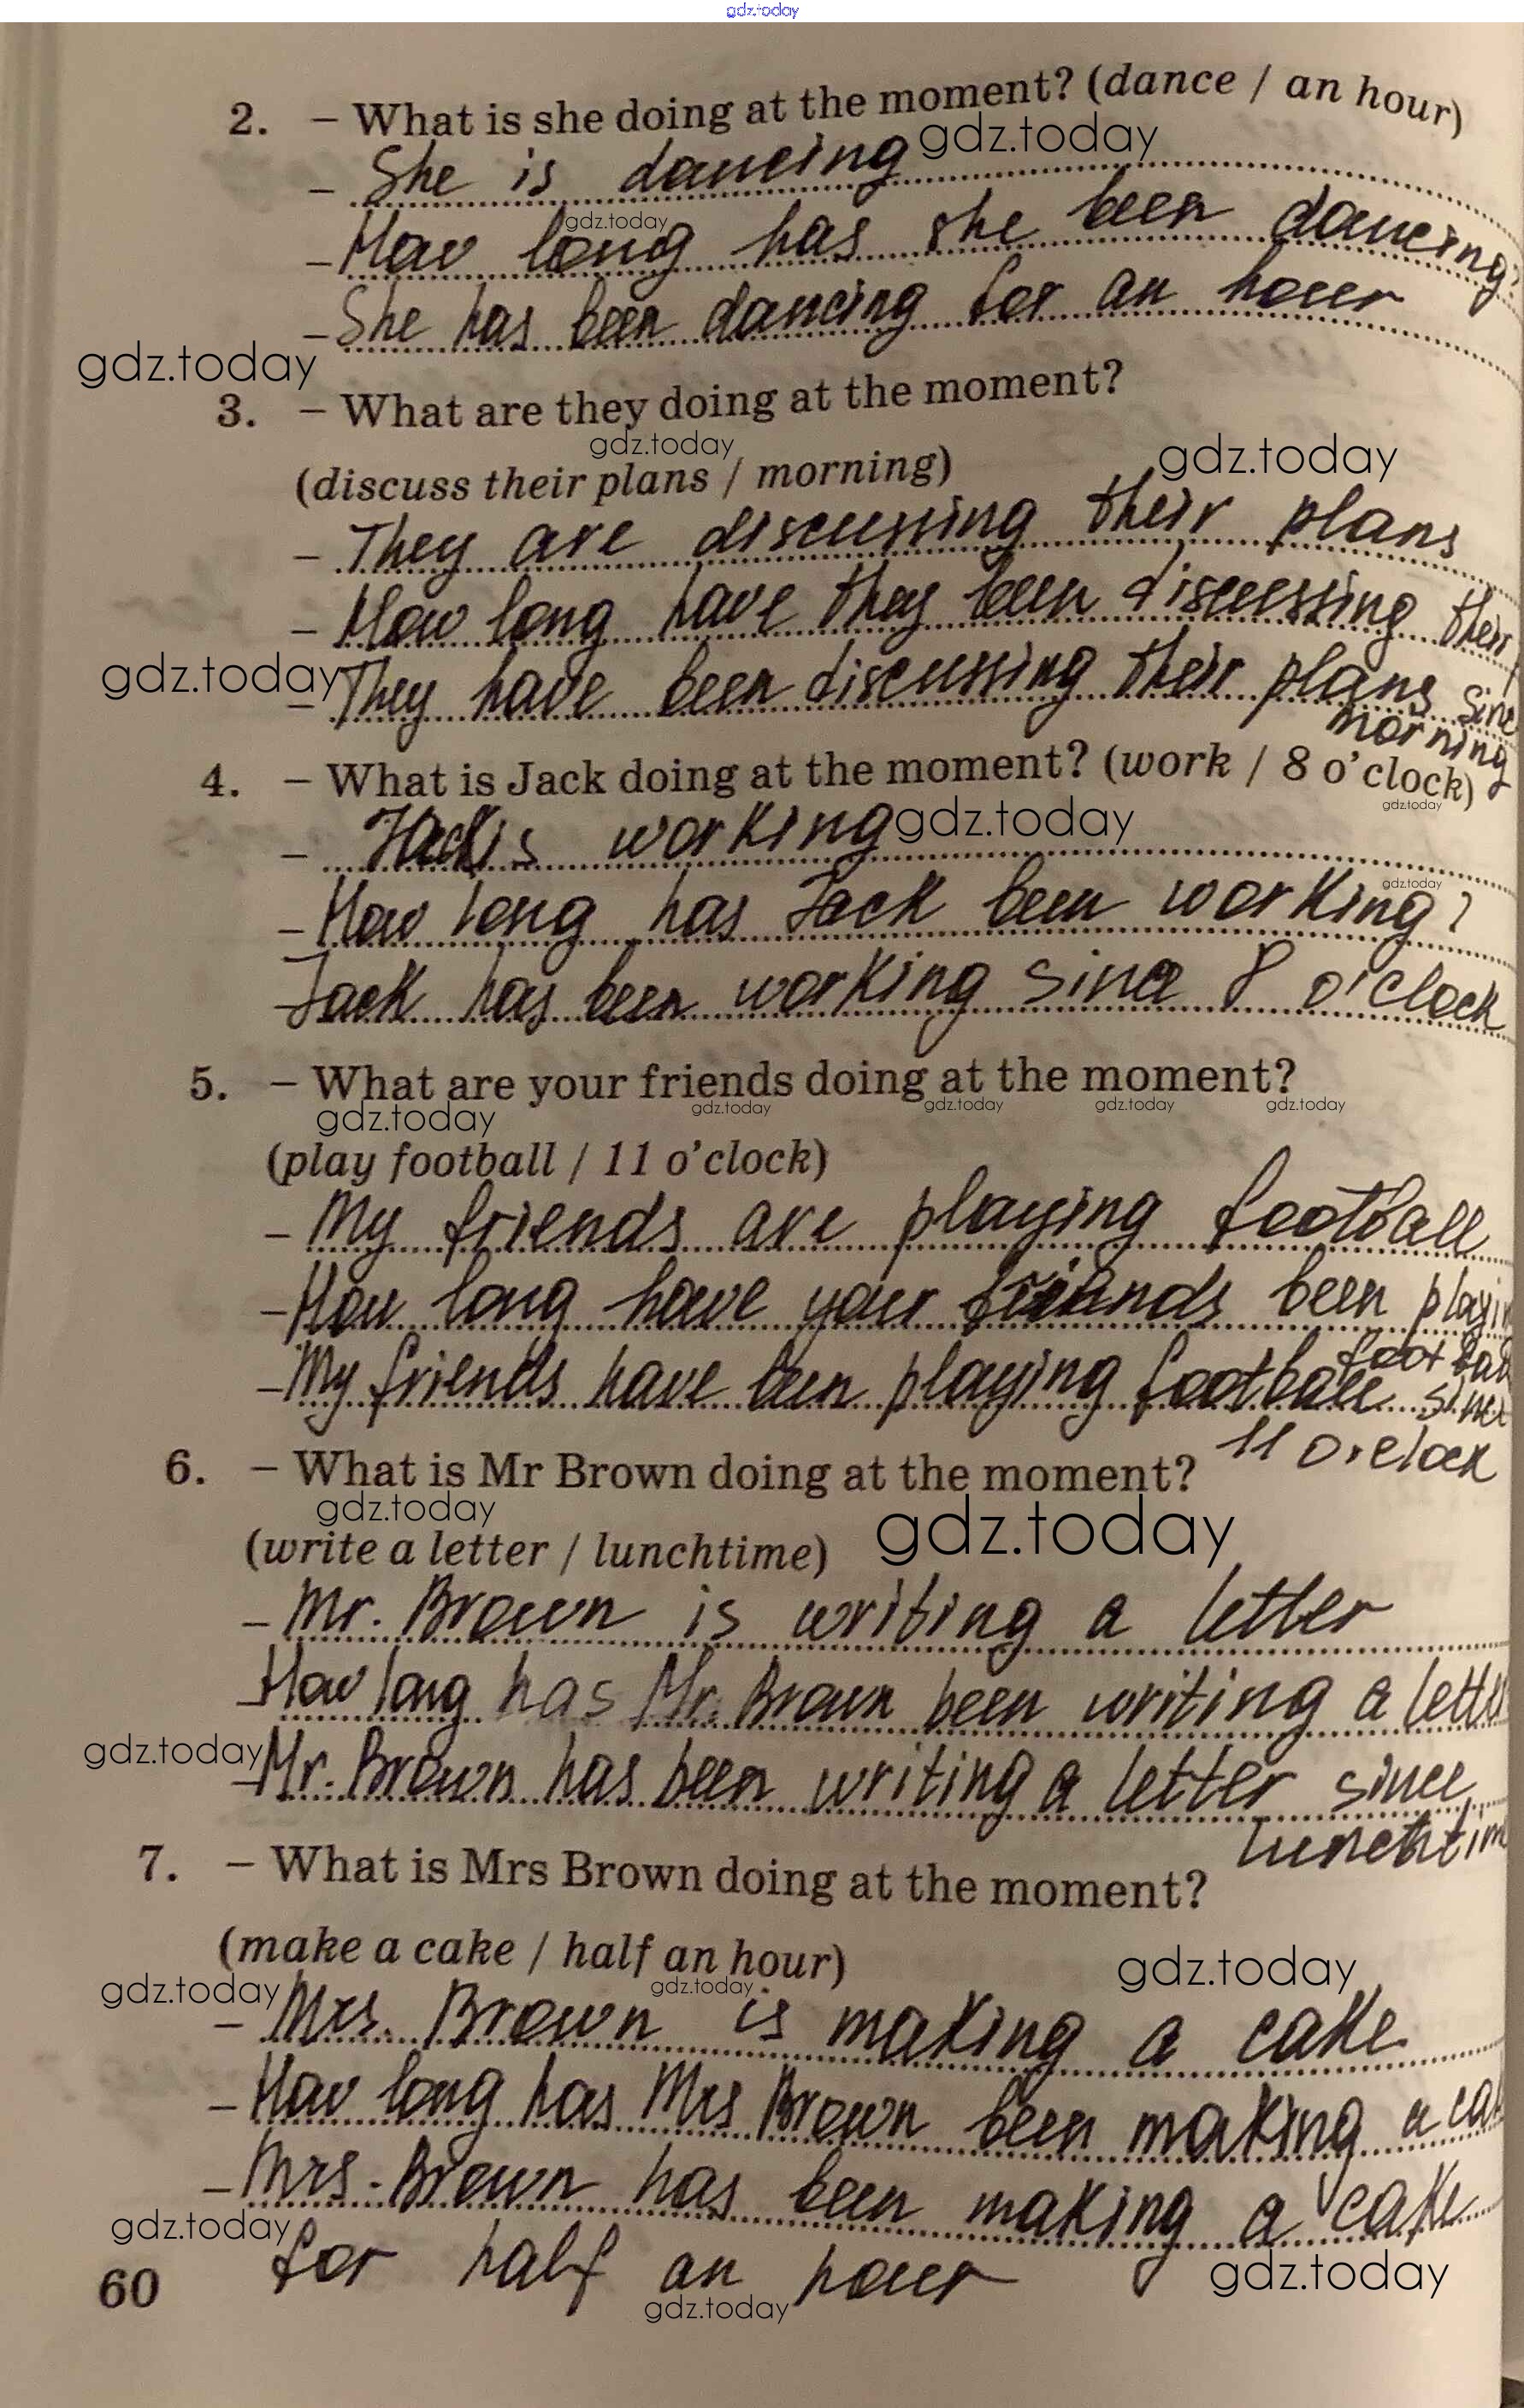 gdz.today
2. – What is she doing at the moment? (dance / an hour)
gdz.today
– She is dancing
gdz.today
– How long has she been dancing?
– She has been dancing for an hour
gdz.today
3. – What are they doing at the moment?
gdz.today
gdz.today
(discuss their plans / morning)
– They are discussing their plans
– How long have they been discussing their
gdz.today
– They have been discussing their plans sinc
morning
4. – What is Jack doing at the moment? (work / 8 o'clock)
gdz.today
– Jack is working
gdz.today
gdz.today
– How long has Jack been working?
– Jack has been working since 8 o'clock
5. – What are your friends doing at the moment?
gdz.today
gdz.today
gdz.today
gdz.today
gdz.today
(play football / 11 o'clock)
– My friends are playing football
– How long have your friends been playin
football
– My friends have been playing football since
11 o'clock
6. – What is Mr Brown doing at the moment?
gdz.today
gdz.today
(write a letter / lunchtime)
– Mr. Brown is writing a letter
– How long has Mr. Brown been writing a letter
gdz.today
– Mr. Brown has been writing a letter since
lunchtim
7. – What is Mrs Brown doing at the moment?
(make a cake / half an hour)
gdz.today
gdz.today
gdz.today
– Mrs. Brown is making a cake
– How long has Mrs Brown been making a cak
– Mrs. Brown has been making a cake
gdz.today
for half an hour
60
gdz.today
gdz.today